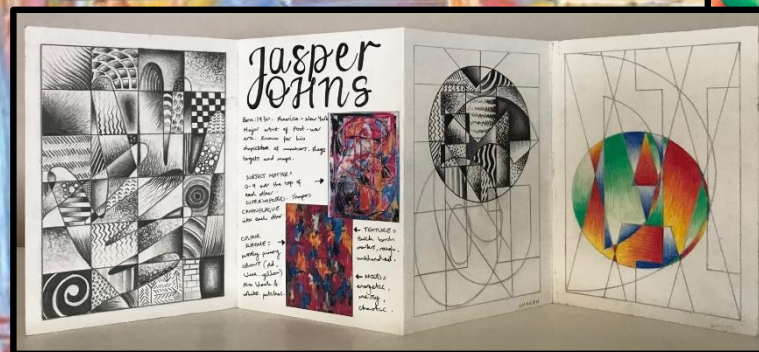 Jasper
JOHNS
Born: 1930. America - New York
Major artist of Post-war
arts. Known for his
depiction of numbers, flags
targets and maps.
SUBJECT MATTER:
0-9 over the top of
each other.
SUPERIMPOSED. Shapes
CAMOUFLAGUE
into each other
COLOUR
SCHEME:
mostly primary
colours (red,
blue, yellow)
Some black &
white patches.
← TEXTURE:
thick brush
marks, rough,
unblended.
← MOOD:
energetic,
messy,
chaotic.